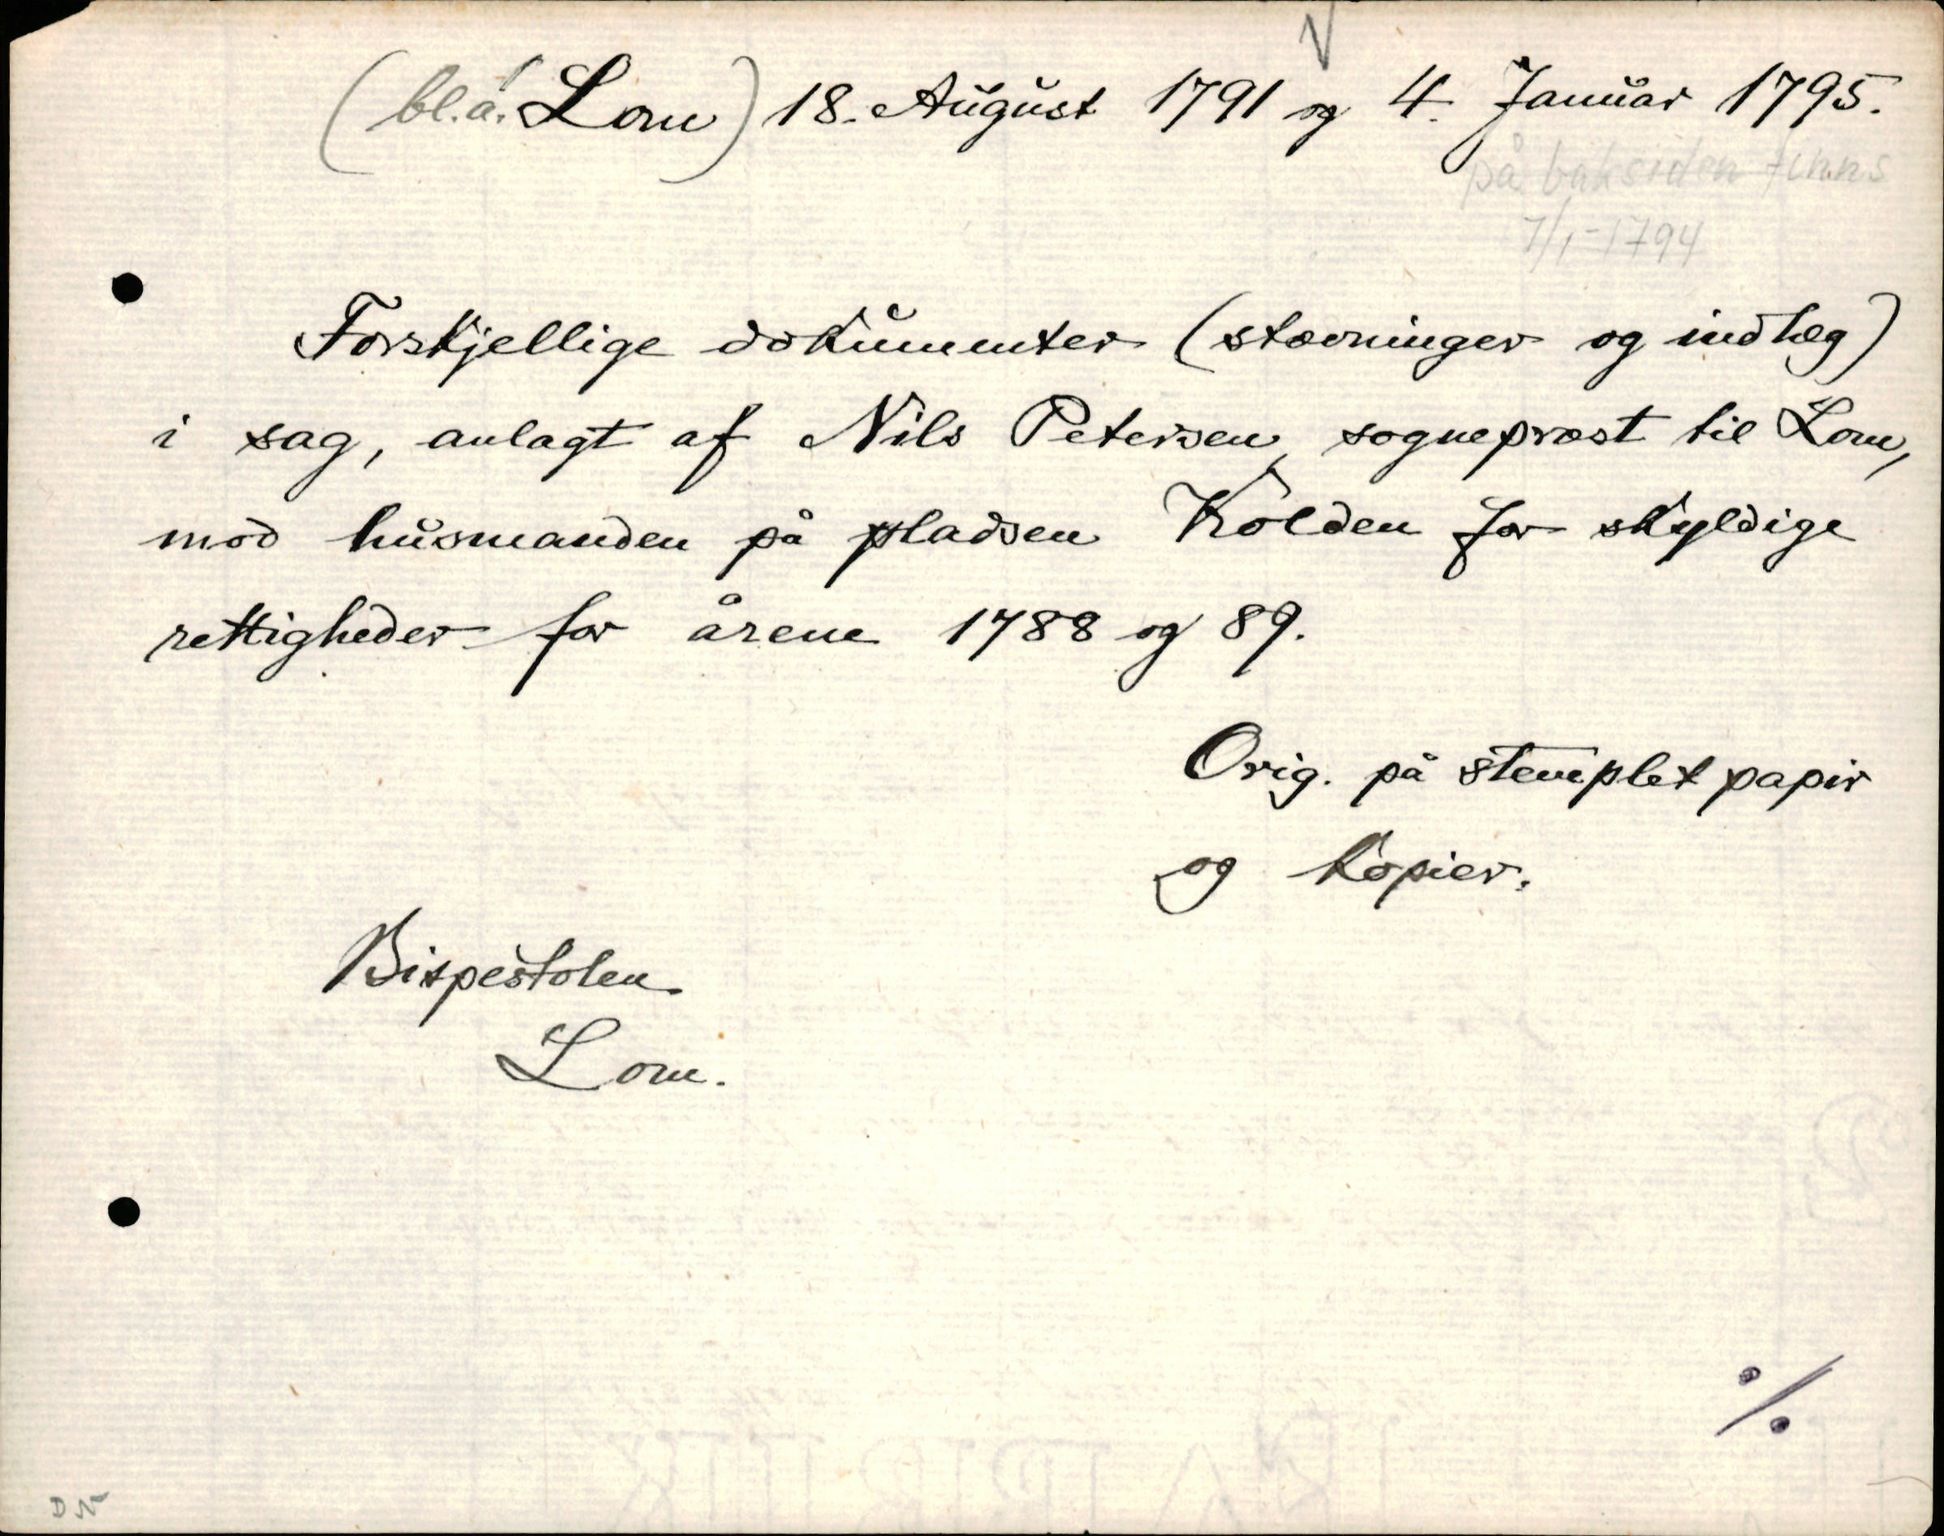 (bl.a. Lom) 18. August 1791 og 4. Januar 1795.
på baksiden finns
7/1-1794
Forskjellige dokumenter (stævninger og indlæg)
i sag, anlagt af Nils Petersen, sognepræst til Lom,
mod husmanden på pladsen Kolden for skyldige
rettigheder for årene 1788 og 89.
Orig. på stemplet papir
og kopier.
Bispestolen.
Lom.
%